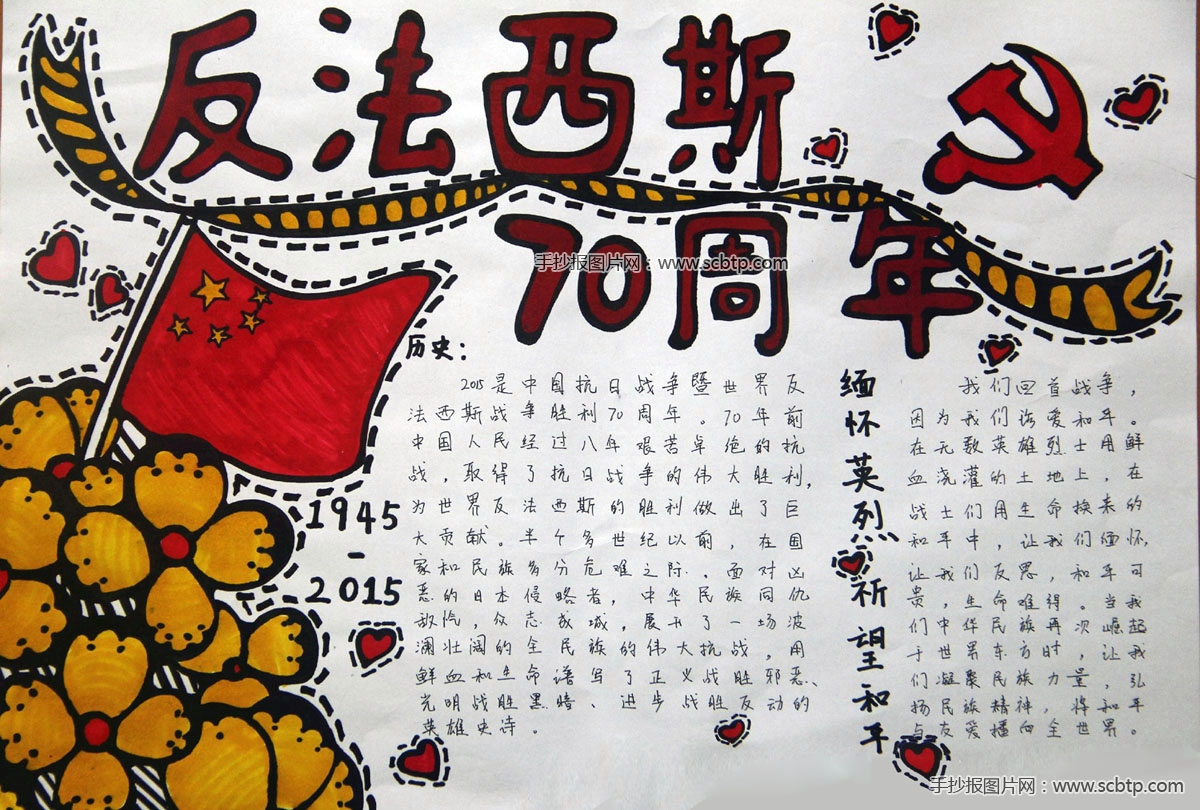 反法西斯
70周年
手抄报图片网：www.scbtp.com
历史：
2015是中国抗日战争暨世界反
法西斯战争胜利70周年。70年前
中国人民经过八年艰苦卓绝的抗
战，取得了抗日战争的伟大胜利，
为世界反法西斯的胜利做出了巨
大贡献。半个多世纪以前，在国
家和民族多分危难之际、面对凶
恶的日本侵略者，中华民族同仇
敌忾，众志成城，展开了一场波
澜壮阔的全民族的伟大抗战，用
鲜血和生命谱写了正义战胜邪恶、
光明战胜黑暗、进步战胜反动的
英雄史诗。
1945
-
2015
缅怀英烈祈望和平
我们回首战争，
因为我们珍爱和平。
在无数英雄烈士用鲜
血浇灌的土地上，在
战士们用生命换来的
和平中，让我们缅怀，
让我们反思，和平可
贵，生命难得。当我
们中华民族再次崛起
于世界东方时，让我
们凝聚民族力量，弘
扬民族精神，将和平
与友爱播向全世界。
手抄报图片网：www.scbtp.com